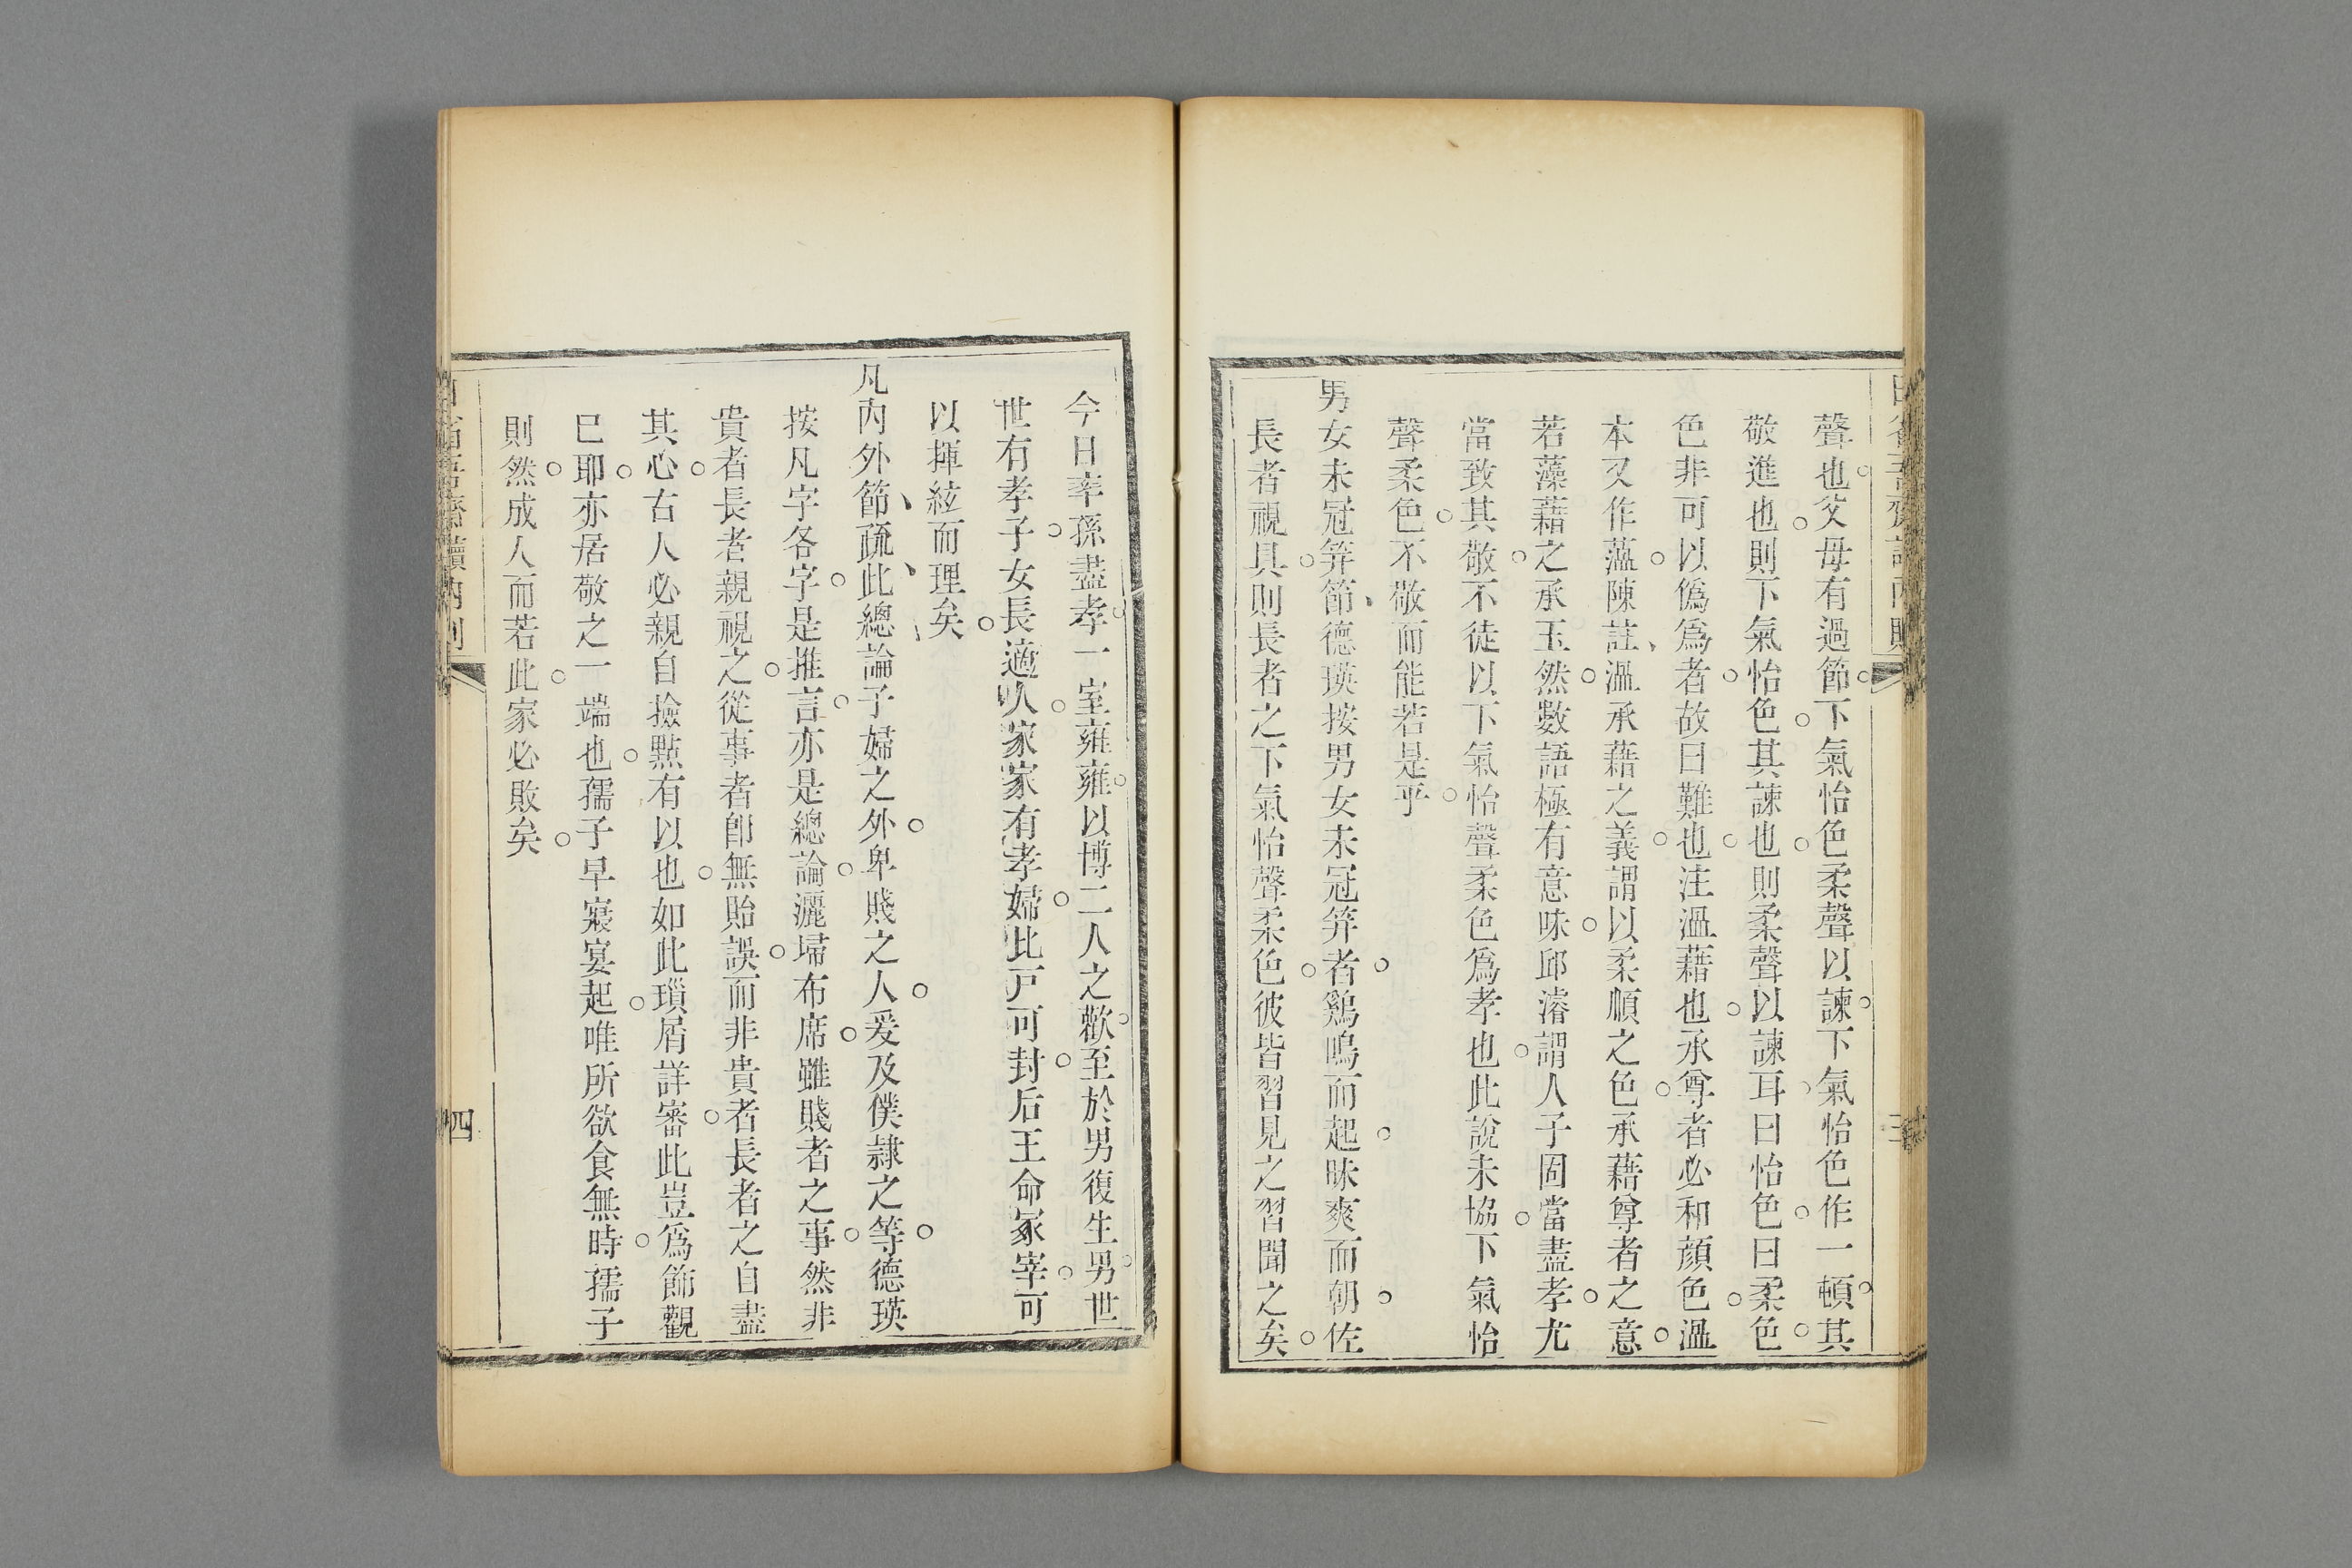 聲也父母有過節下氣怡色柔聲以諫下氣怡色作一頓其
敬進也則下氣怡色其諫也則柔聲以諫耳曰怡色曰柔色
色非可以僞爲者故曰難也注溫藉也承尊者必和顔色溫
本又作薀陳註溫承藉之義謂以柔順之色承藉尊者之意
若藻藉之承玉然數語極有意味邱濬謂人子固當盡孝尤
當致其敬不徒以下氣怡聲柔色爲孝也此說未協下氣怡
聲柔色不敬而能若是乎
男女未冠笄節德瑛按男女未冠笄者鷄鳴而起昧爽而朝佐
長者視具則長者之下氣怡聲柔色彼皆習見之習聞之矣
今日率孫盡孝一室雍雍以博二人之歡至於男復生男世
世有孝子女長適人家家有孝婦比戸可封后王命冢宰可
以揮絃而理矣
凡內外節疏此總論子婦之外卑賤之人爰及僕隷之等德瑛
按凡字各字是推言亦是總論灑埽布席雖賤者之事然非
貴者長者親視之從事者卽無貽誤而非貴者長者之自盡
其心古人必親自撿點有以也如此瑣屑詳審此豈爲飾觀
已耶亦居敬之一端也孺子早寢宴起唯所欲食無時孺子
則然成人而若此家必敗矣
四